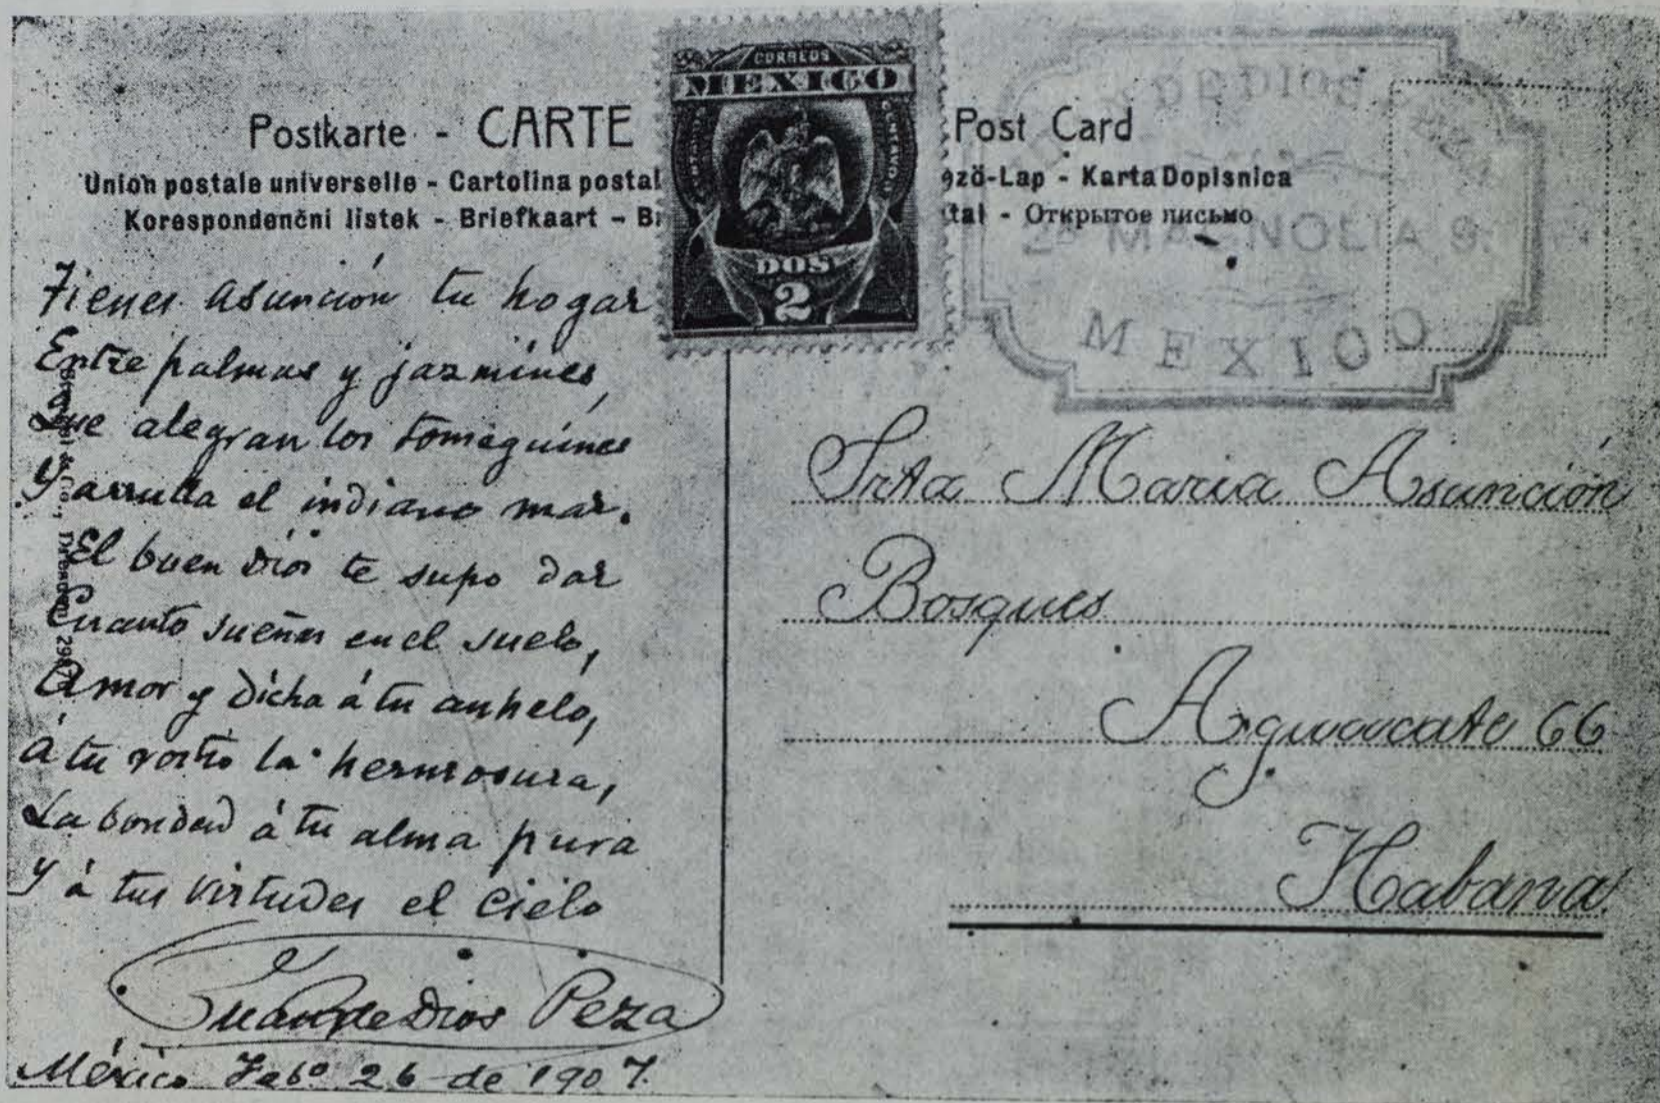 CORREOS
MEXICO
DOS
2
Postkarte - CARTE
Post Card
Union postale universelle - Cartolina postal
ező-Lap - Karta Dopisnica
Korespondenční listek - Briefkaart - B
tal - Открытое письмо
DE DIOS
2ª MAGNOLIA 9.
MEXICO
Tienes Asunción tu hogar
Entre palmas y jazmines,
Que alegran los tomeguines
Y arrulla el indiano mar.
El buen Dios te supo dar
Cuanto sueñas en el suelo,
Amor y dicha á tu anhelo,
á tu rostro la hermosura,
La bondad á tu alma pura
Y á tus virtudes el cielo
Juan de Dios Peza
México Febº 26 de 1907.
Srta Maria Asunción
Bosques
Aguacate 66
Habana